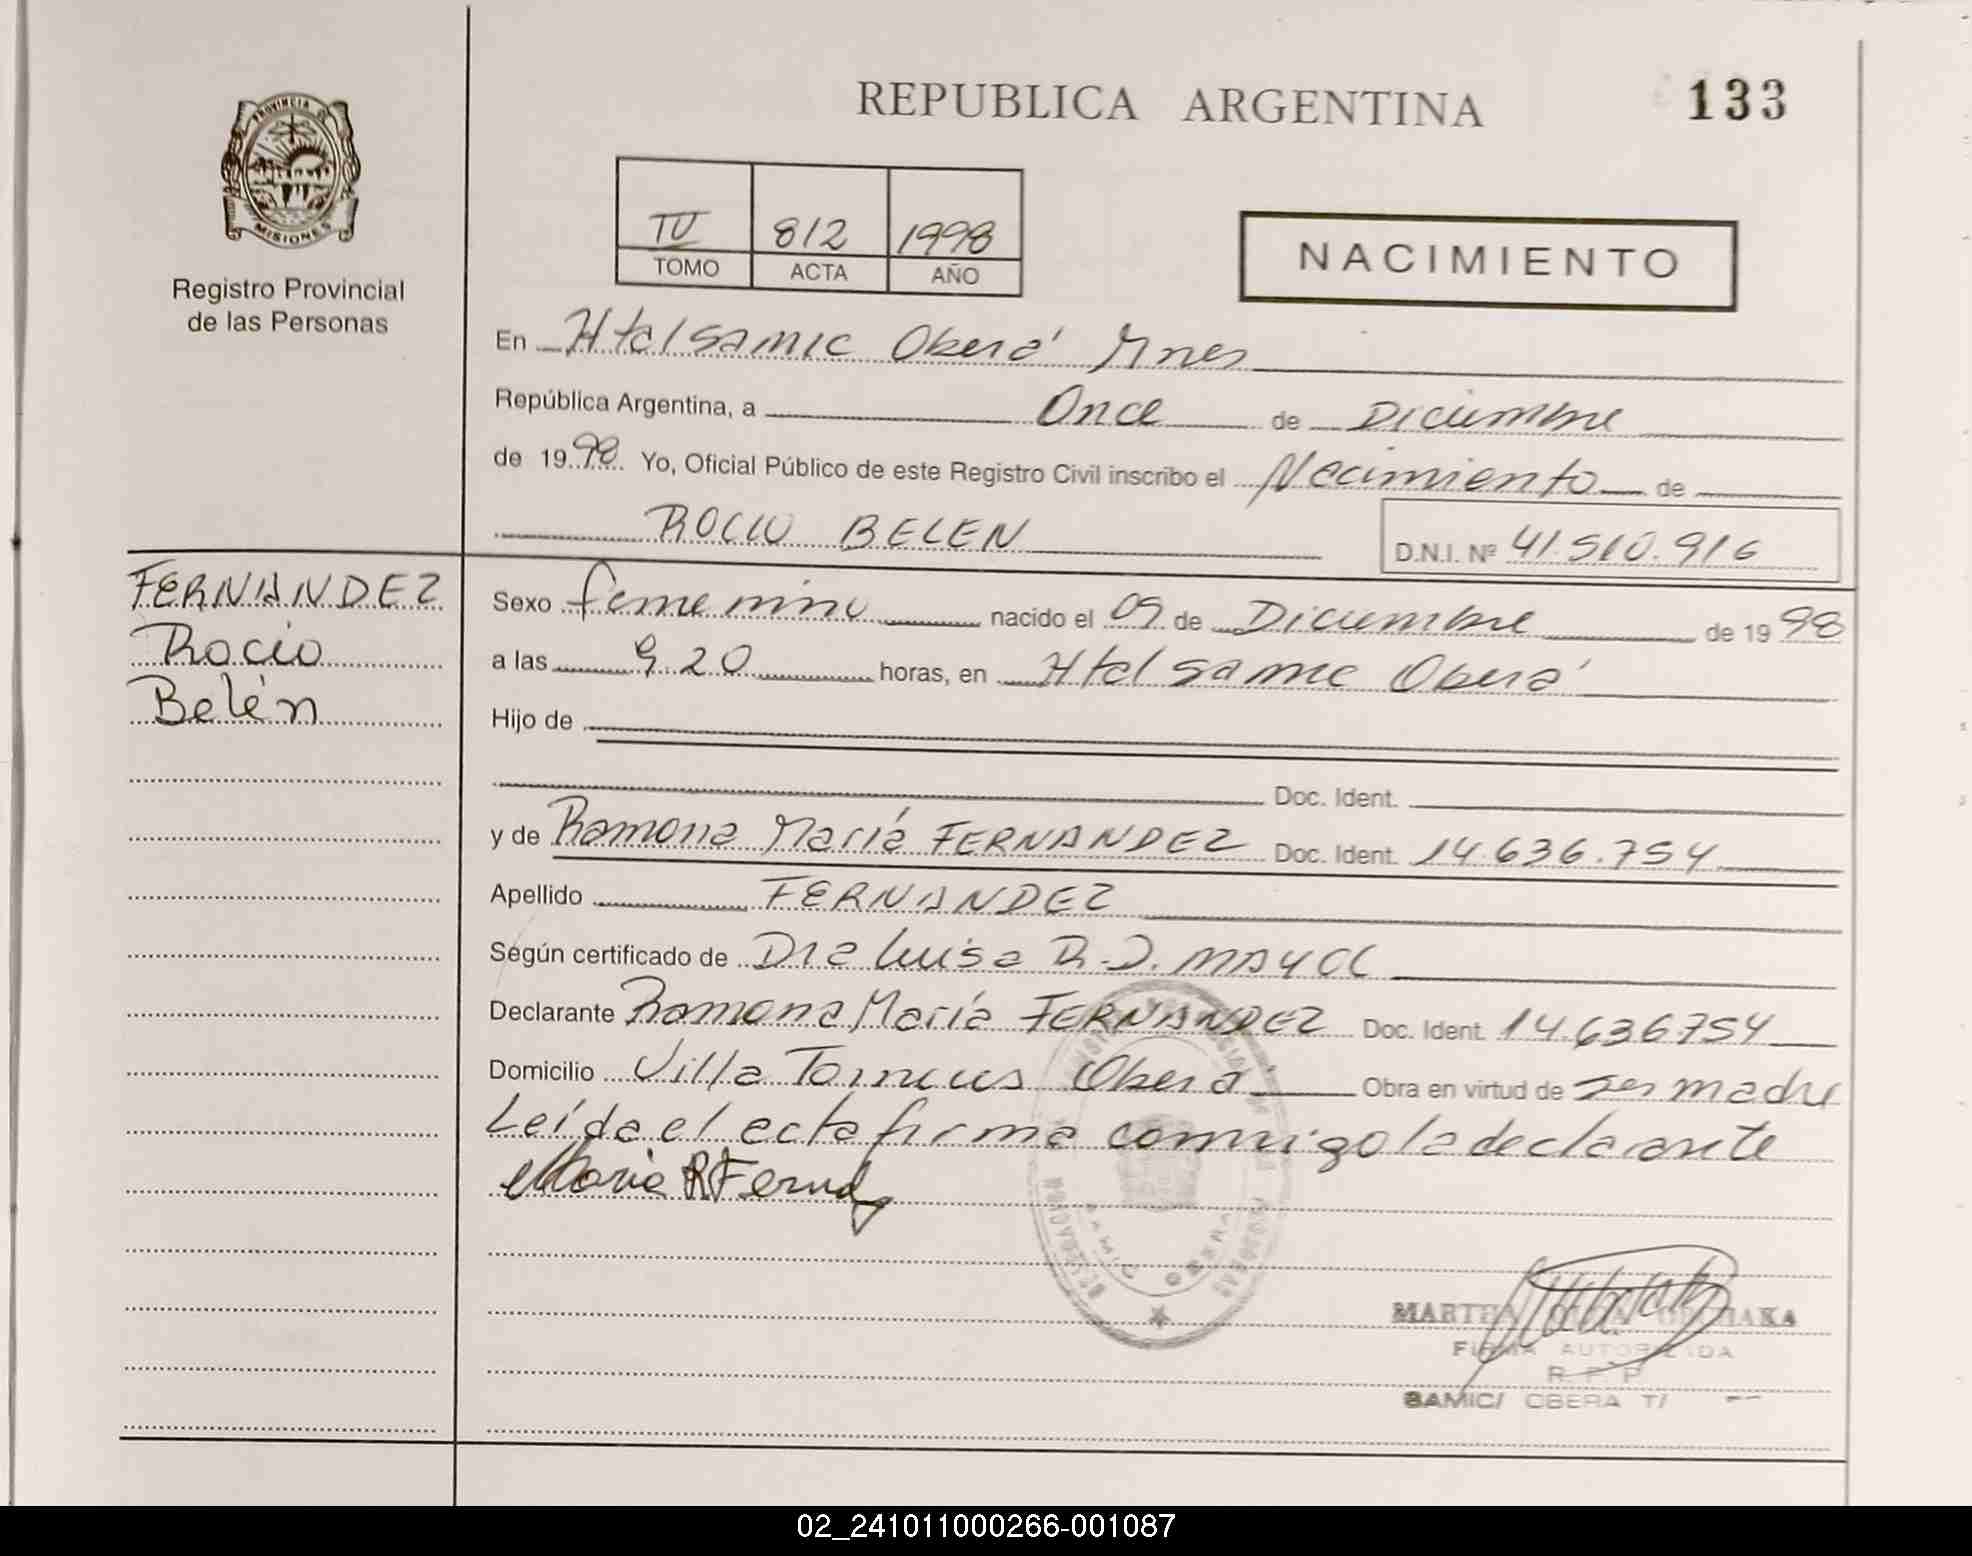 REPUBLICA ARGENTINA
133
PROVINCIA
MISIONES
Registro Provincial
de las Personas
TOMO IV
ACTA 812
AÑO 1998
NACIMIENTO
En Htal Samic Oberá Mnes
República Argentina, a Once de Diciembre
de 1998 Yo, Oficial Público de este Registro Civil inscribo el Nacimiento de
ROCIO BELEN D.N.I. Nº 41.510.916
FERNANDEZ
Rocio
Belén
Sexo femenino nacido el 09 de Diciembre de 1998
a las 9.20 horas, en Htal Samic Oberá
Hijo de
Doc. Ident.
y de Ramona María FERNANDEZ Doc. Ident. 14.636.754
Apellido FERNANDEZ
Según certificado de Dra Luisa R.D. MAYOL
Declarante Ramona María FERNANDEZ Doc. Ident. 14.636754
Domicilio Villa Oberá Obra en virtud de ser madre
Leída el acta firma conmigo la declarante
Maria R Fernandez
SAMIC OBERA
MARTHA
FIRMA AUTORIZADA
R.P.P
SAMIC/ OBERA T/
02_241011000266-001087